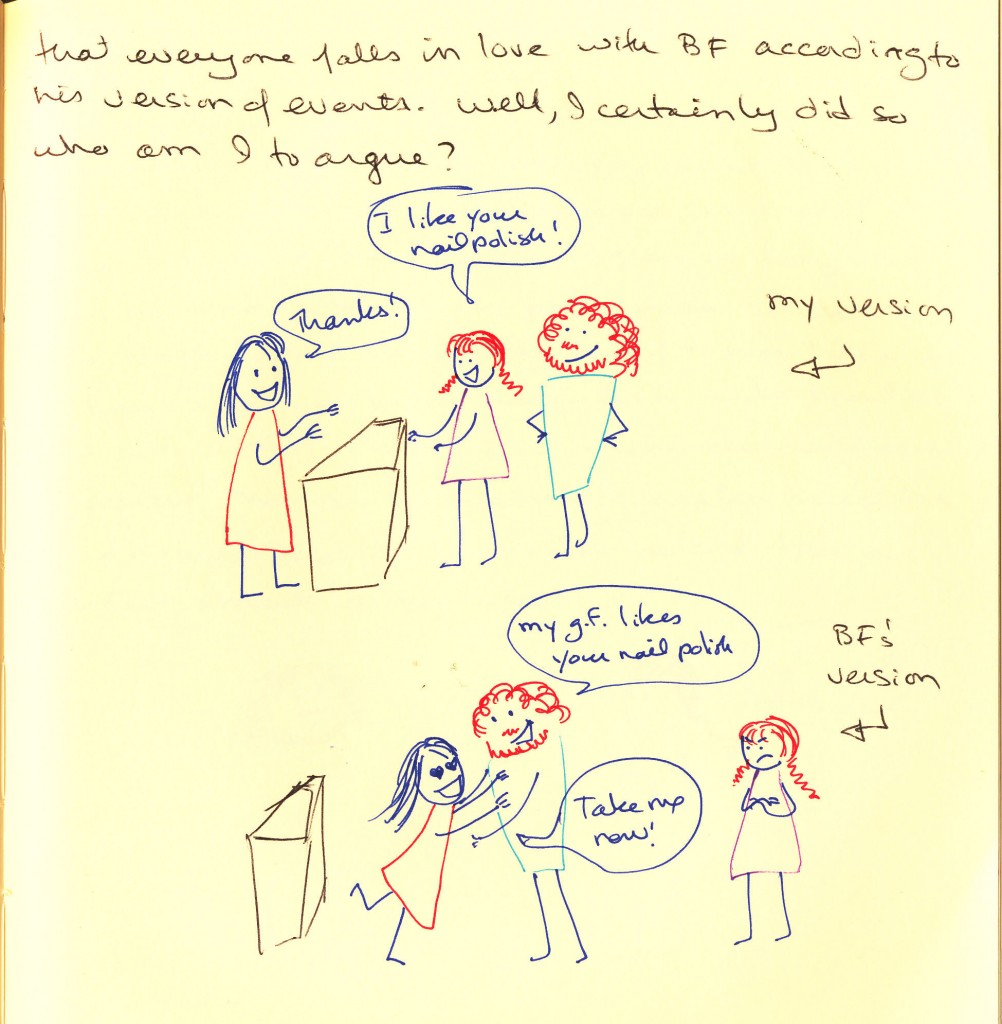 that everyone falls in love with BF according to
his version of events. Well, I certainly did so
who am I to argue?
I like your
nail polish!
Thanks!
my version
my g.f. likes
your nail polish
BF's
version
Take me
now!